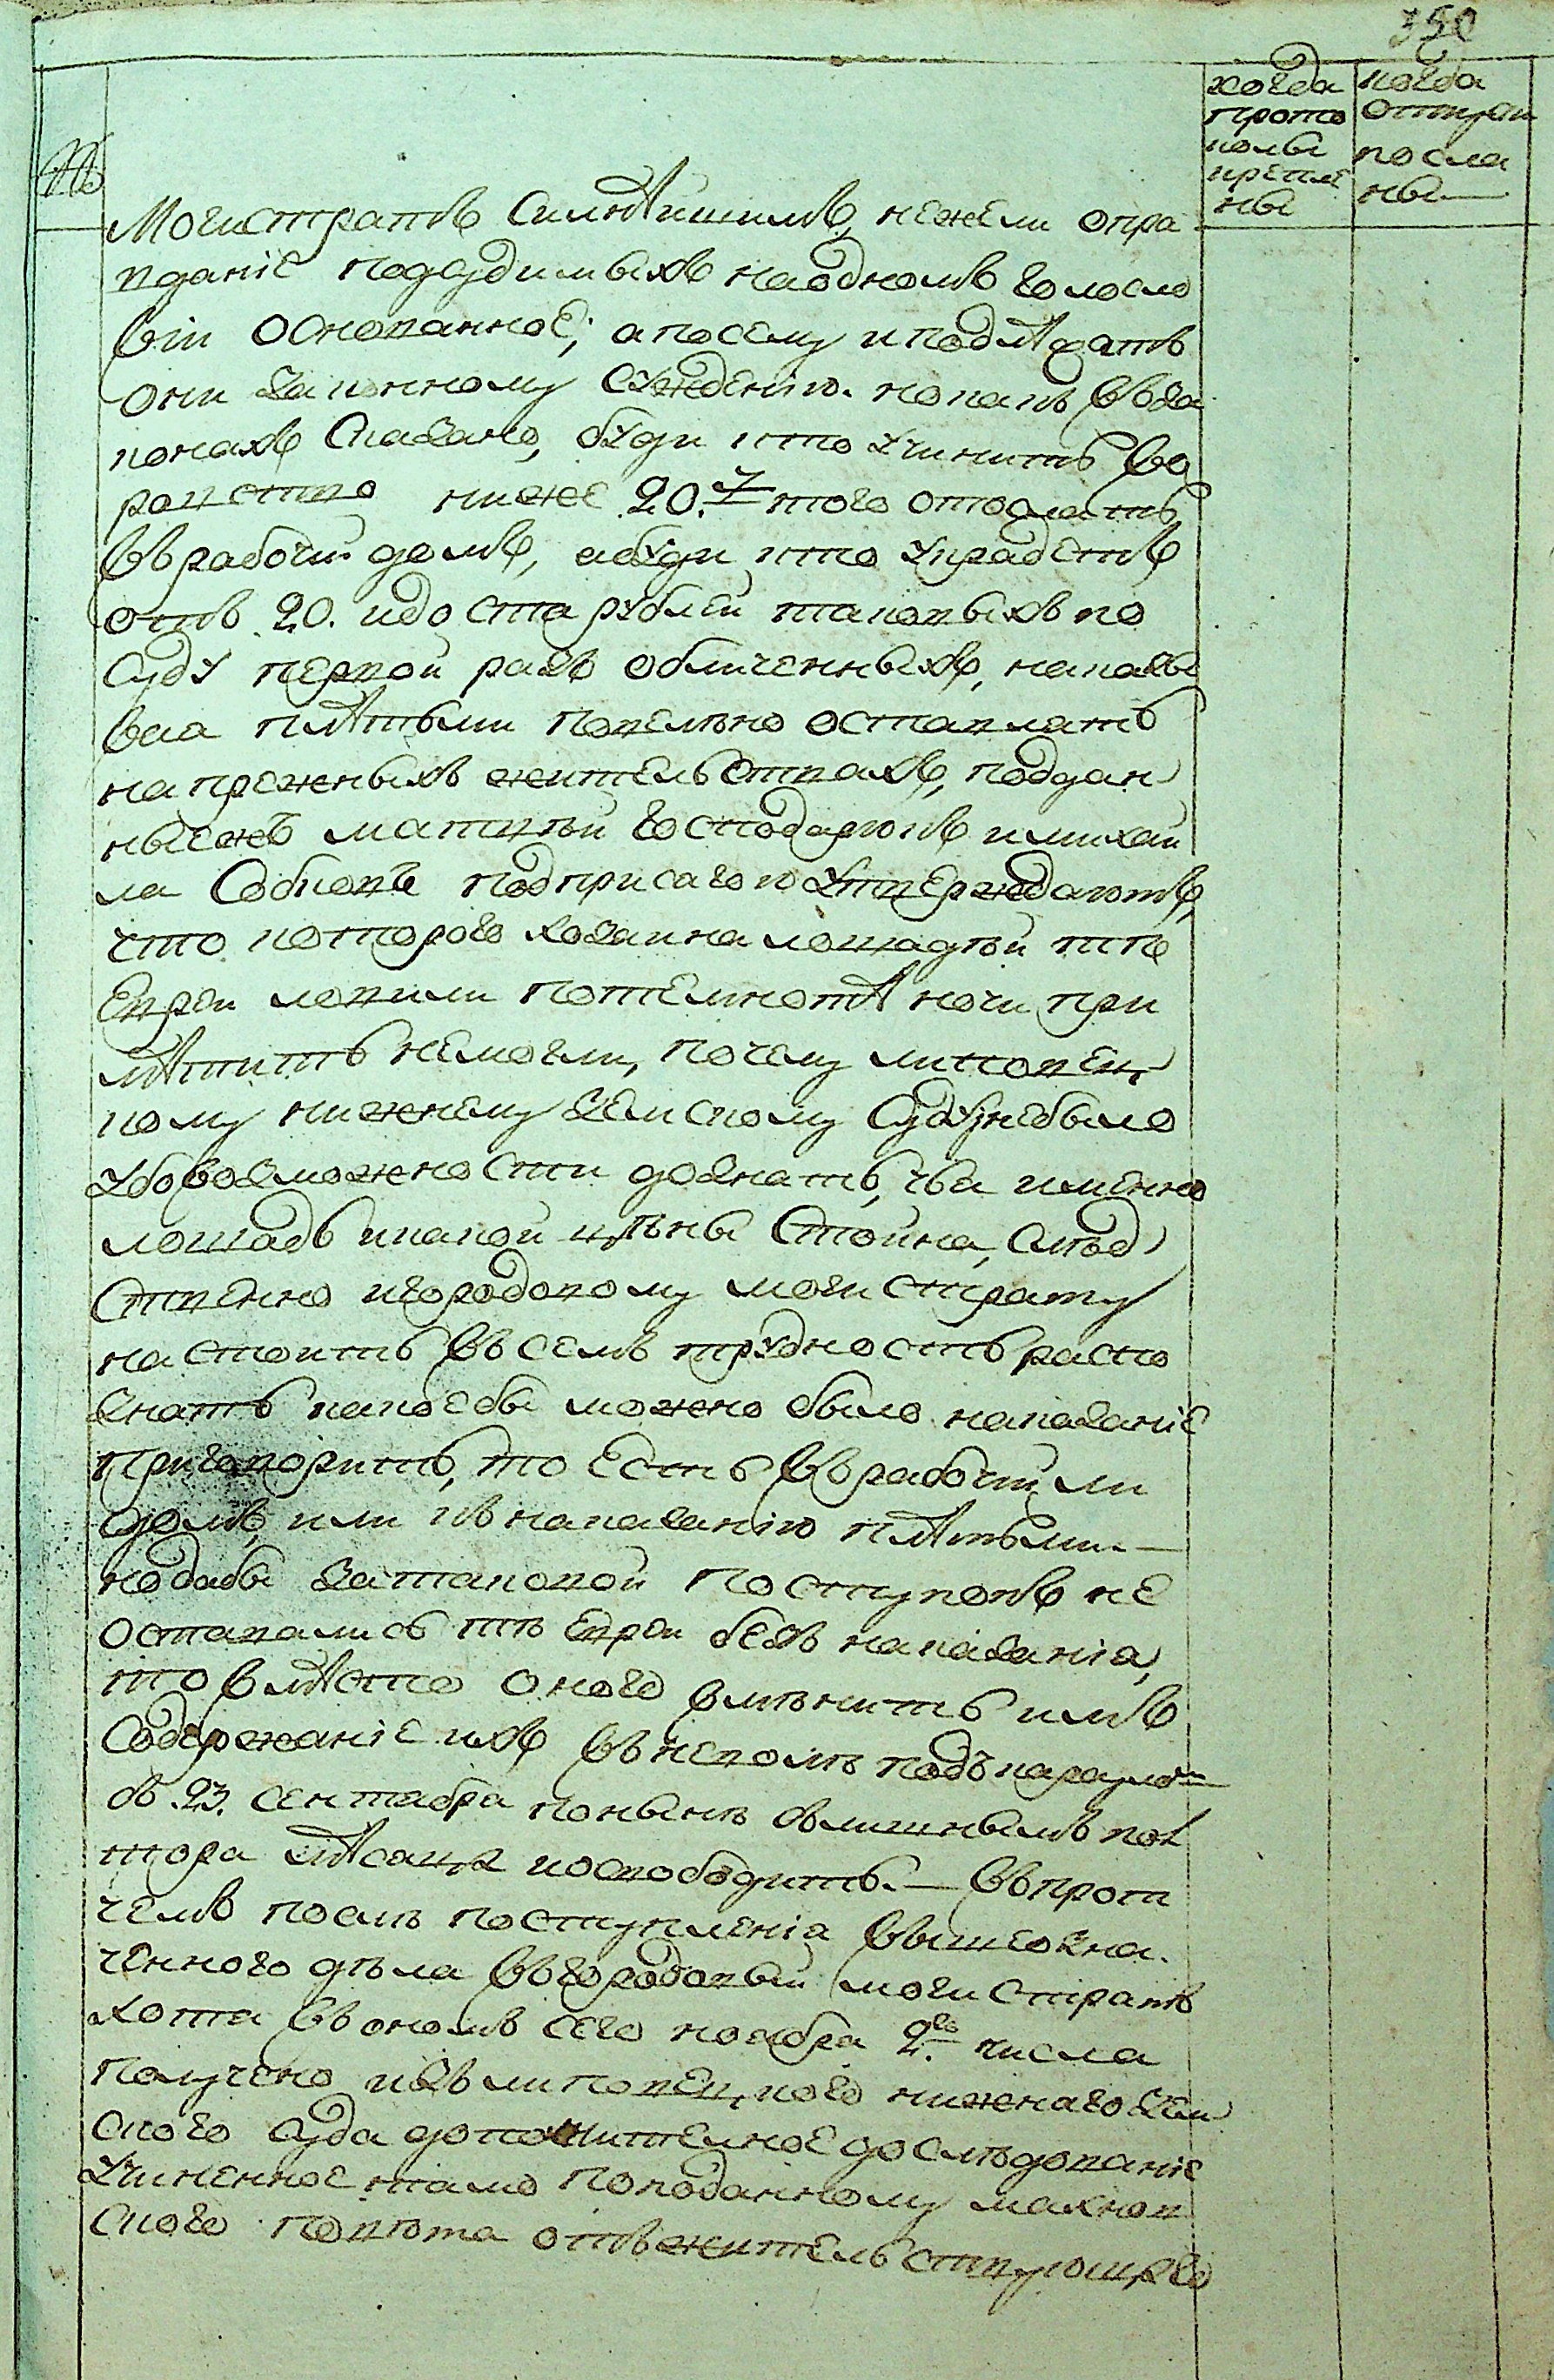 350
когда прото колы крепле ны
когда отпуски посла ны
№
Могистратъ Силнѣишимъ, нежели опра
вданіе подсудимыхъ наодномъ голосло
віи основанное; апосему иподлѣжатъ
они законному сужденію. нокакъ взака
конахъ сказано, буди кто учинитъ во
ровство ниже 20. того отослать
врабочіи домъ, абуди кто украдетъ
отъ 20. идо ста рублеи таковыхъ по
суду первои разъ обличенныхъ, наказы
вая плѣтьми повелѣно оставлять
напрежныхъ жительствахъ, поддан
ныежъ матвѣи господарюкъ имихаи
ла Собковъ подприсягою утверждаютъ,
что которого хозяина лошадѣи тѣ
Евреи ловили потемнотѣ ночи при
мѣтить немогли, почему литовец
кому нижнему земскому Суду небыло
убовозможности дознать, чья имянно
лошадь икакой цѣны стоила, слѣд
ственно игородовому могистрату
настоитъ всемъ трудность распо
знать какоебы можно было наказаніе
приговорить, то есть врабочіи ли
домъ, или кнаказанію плѣтьми.—
нодабы затаковой поступокъ не
оставались тѣ Евреи безъ наказанія,
то вмѣсто оного вмѣнить имъ
содержаніе ихъ внеполѣ подъ карауломъ
съ 23. сентября понынѣ слишнымъ пол
тора мѣсяца иосвободить.— Впротчемъ
послѣ поступленія вышеозна
ченного дѣла вгородовыи могистратъ
хотя вономъ сего ноября 2го числа
получено изъ липовецкого нижнаго зем
ского суда дополнителное дослѣдованіе
учиненное тамо поподанному махнов
ского повѣта отъ жительствующаго